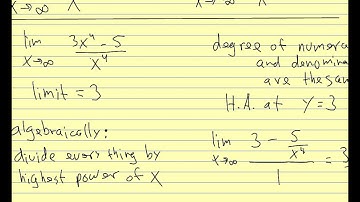 x→∞ x x→∞ x
lim 3x⁴ - 5
x→∞ x⁴
limit = 3
degree of numera
and denomina
are the sam
H.A. at y=3
algebraically:
divide everything by
highest power of x
lim 3 - 5/x⁴
x→∞ 1 = 3